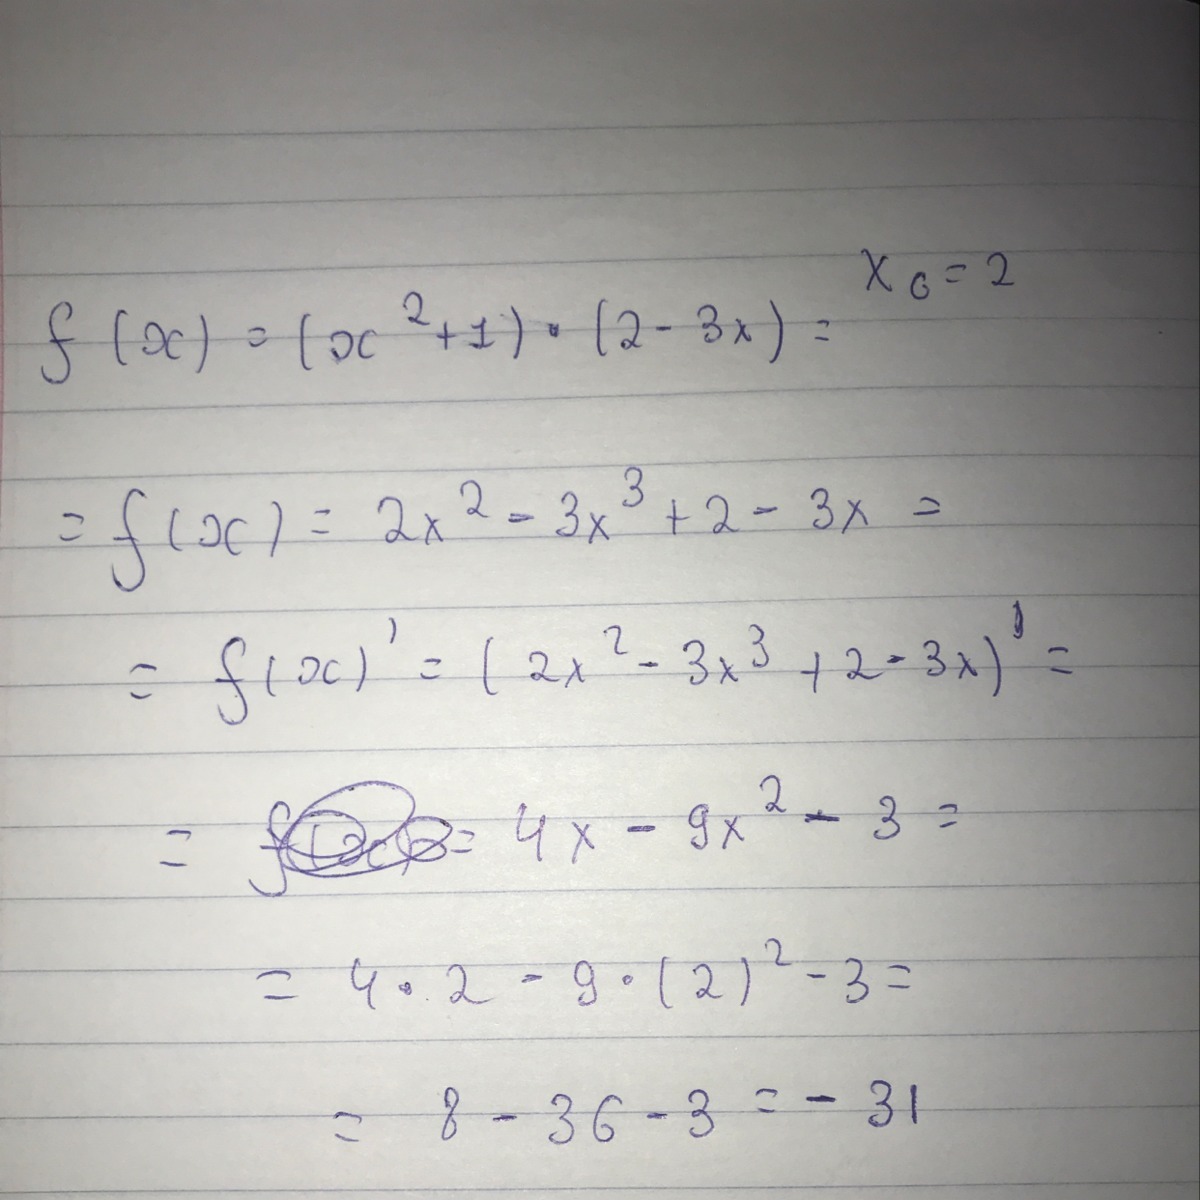 x₀ = 2
f(x) = (x² + 1) · (2 - 3x) =
= f(x) = 2x² - 3x³ + 2 - 3x =
= f(x)' = (2x² - 3x³ + 2 - 3x)' =
= f = 4x - 9x² - 3 =
= 4 · 2 - 9 · (2)² - 3 =
= 8 - 36 - 3 = - 31